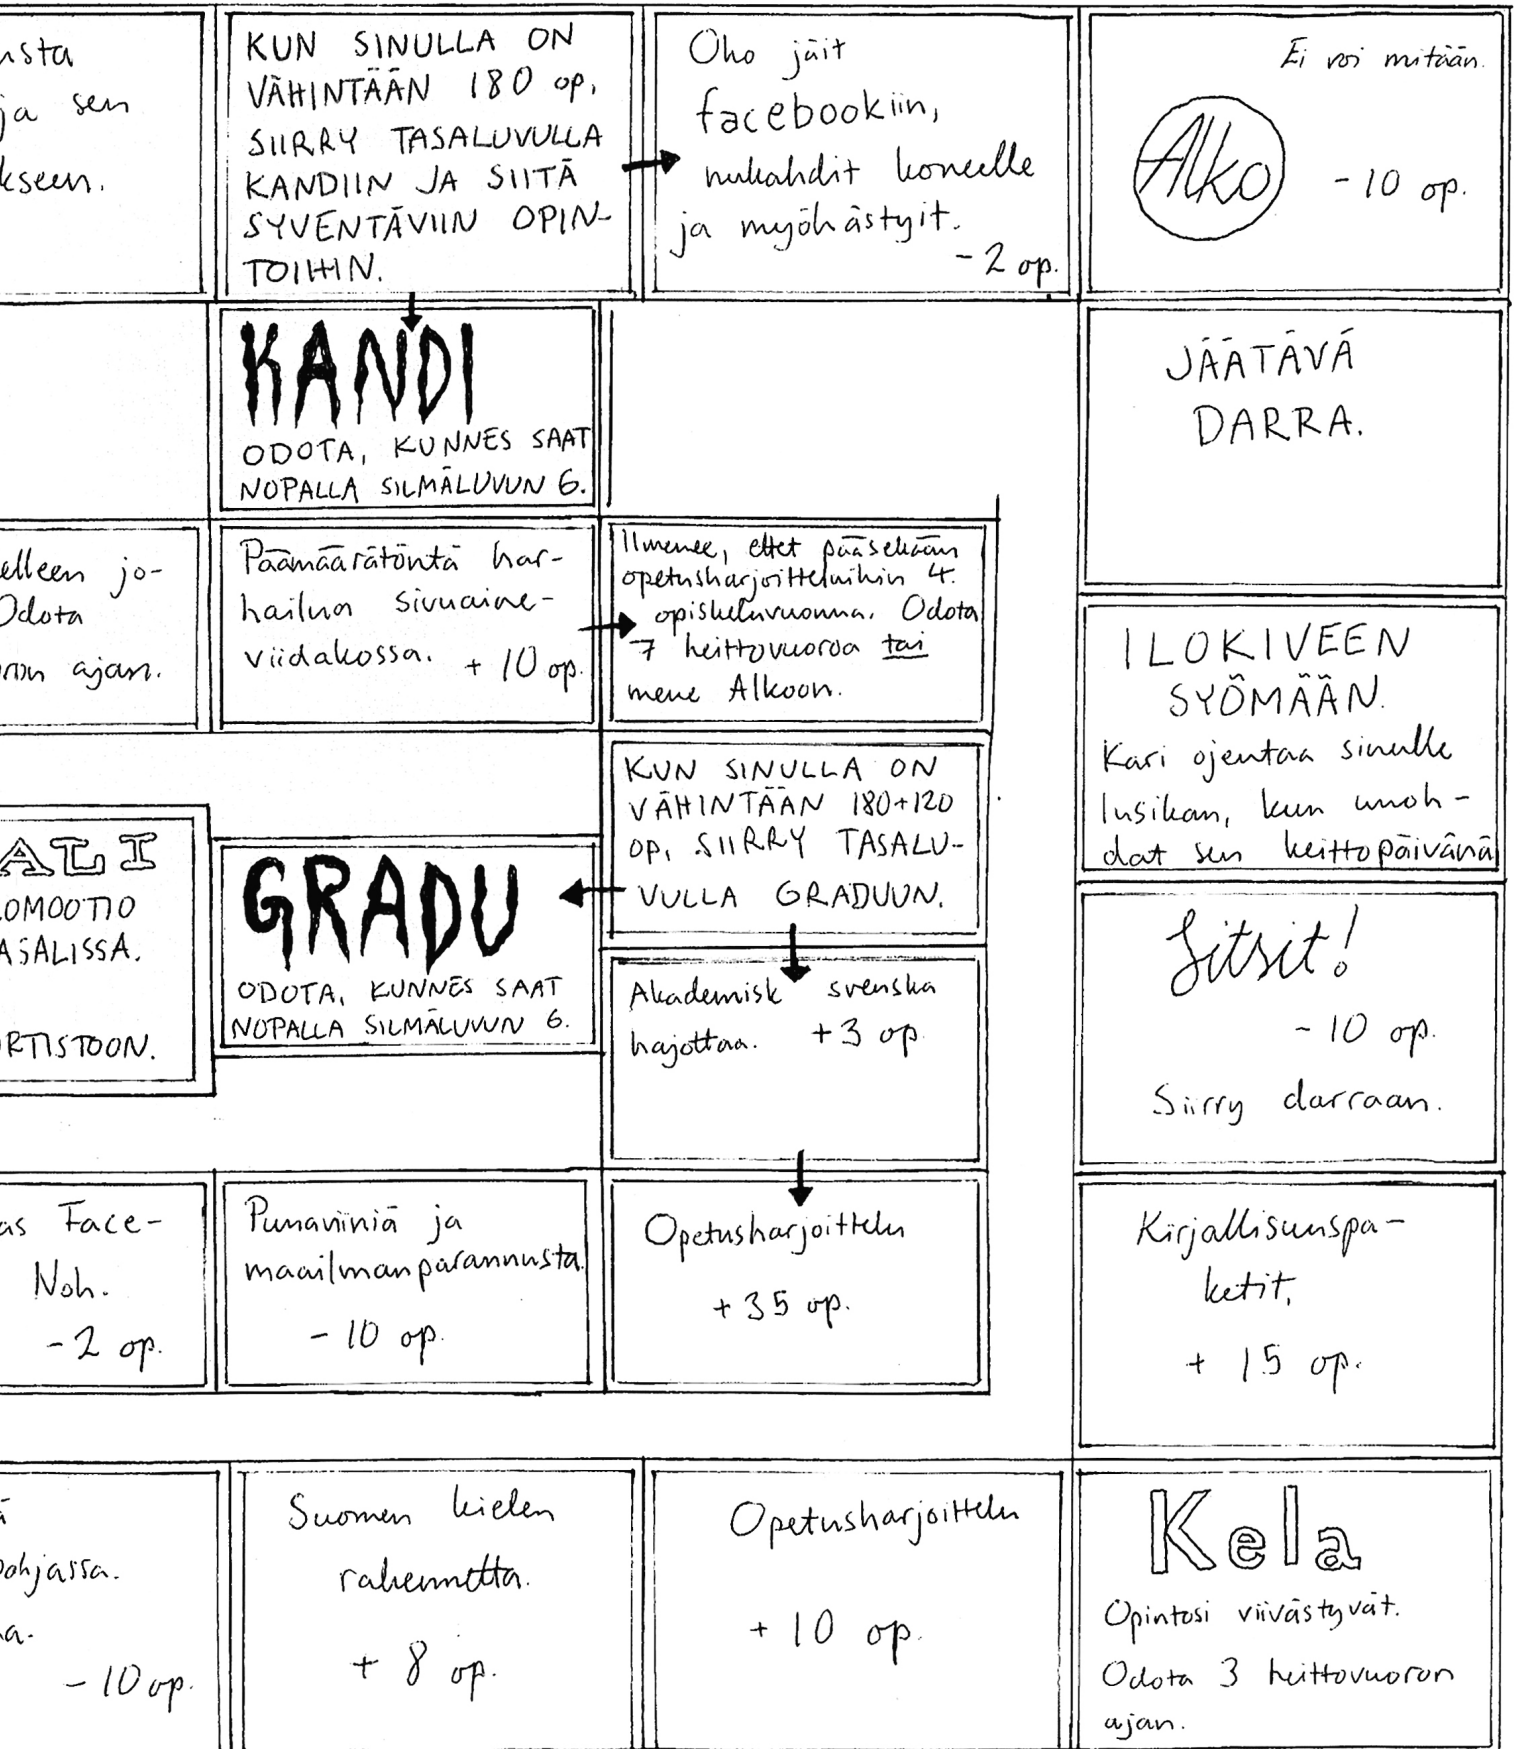 usta
ja sen
kseen.
KUN SINULLA ON
VÄHINTÄÄN 180 op,
SIIRRY TASALUVULLA
KANDIIN JA SIITÄ
SYVENTÄVIIN OPIN-
TOIHIN.
Oho jäit
facebookiin,
nukahdit koneelle
ja myöhästyit.
-2 op.
Ei voi mitään.
Alko
-10 op.
KANDI
ODOTA, KUNNES SAAT
NOPALLA SILMÄLUVUN 6.
JÄÄTÄVÄ
DARRA.
elleen jo-
Odota
oron ajan.
Päämäärätöntä har-
hailua sivuaine-
viidakossa. +10 op.
Ilmenee, ettet pääsekään
opetusharjoitteluihin 4.
opiskeluvuonna. Odota
7 heittovuoroa tai
mene Alkoon.
ILOKIVEEN
SYÖMÄÄN.
Kari ojentaa sinulle
lusikan, kun unoh-
dat sen keittopäivänä
ALI
OMOOTIO
ASALISSA.
RTISTOON.
GRADU
ODOTA, KUNNES SAAT
NOPALLA SILMÄLUVUN 6.
KUN SINULLA ON
VÄHINTÄÄN 180+120
OP, SIIRRY TASALU-
VULLA GRADUUN.
Akademisk svenska
hajottaa. +3 op.
Sitsit!
-10 op.
Siirry darraan.
as Face-
Noh.
-2 op.
Punaviiniä ja
maailmanparannusta.
-10 op.
Opetusharjoittelu
+35 op.
Kirjallisuuspa-
ketit.
+ 15 op.
ä
pohjassa.
a.
-10 op.
Suomen kielen
rakennetta.
+ 8 op.
Opetusharjoittelu
+ 10 op.
Kela
Opintosi viivästyvät.
Odota 3 heittovuoron
ajan.